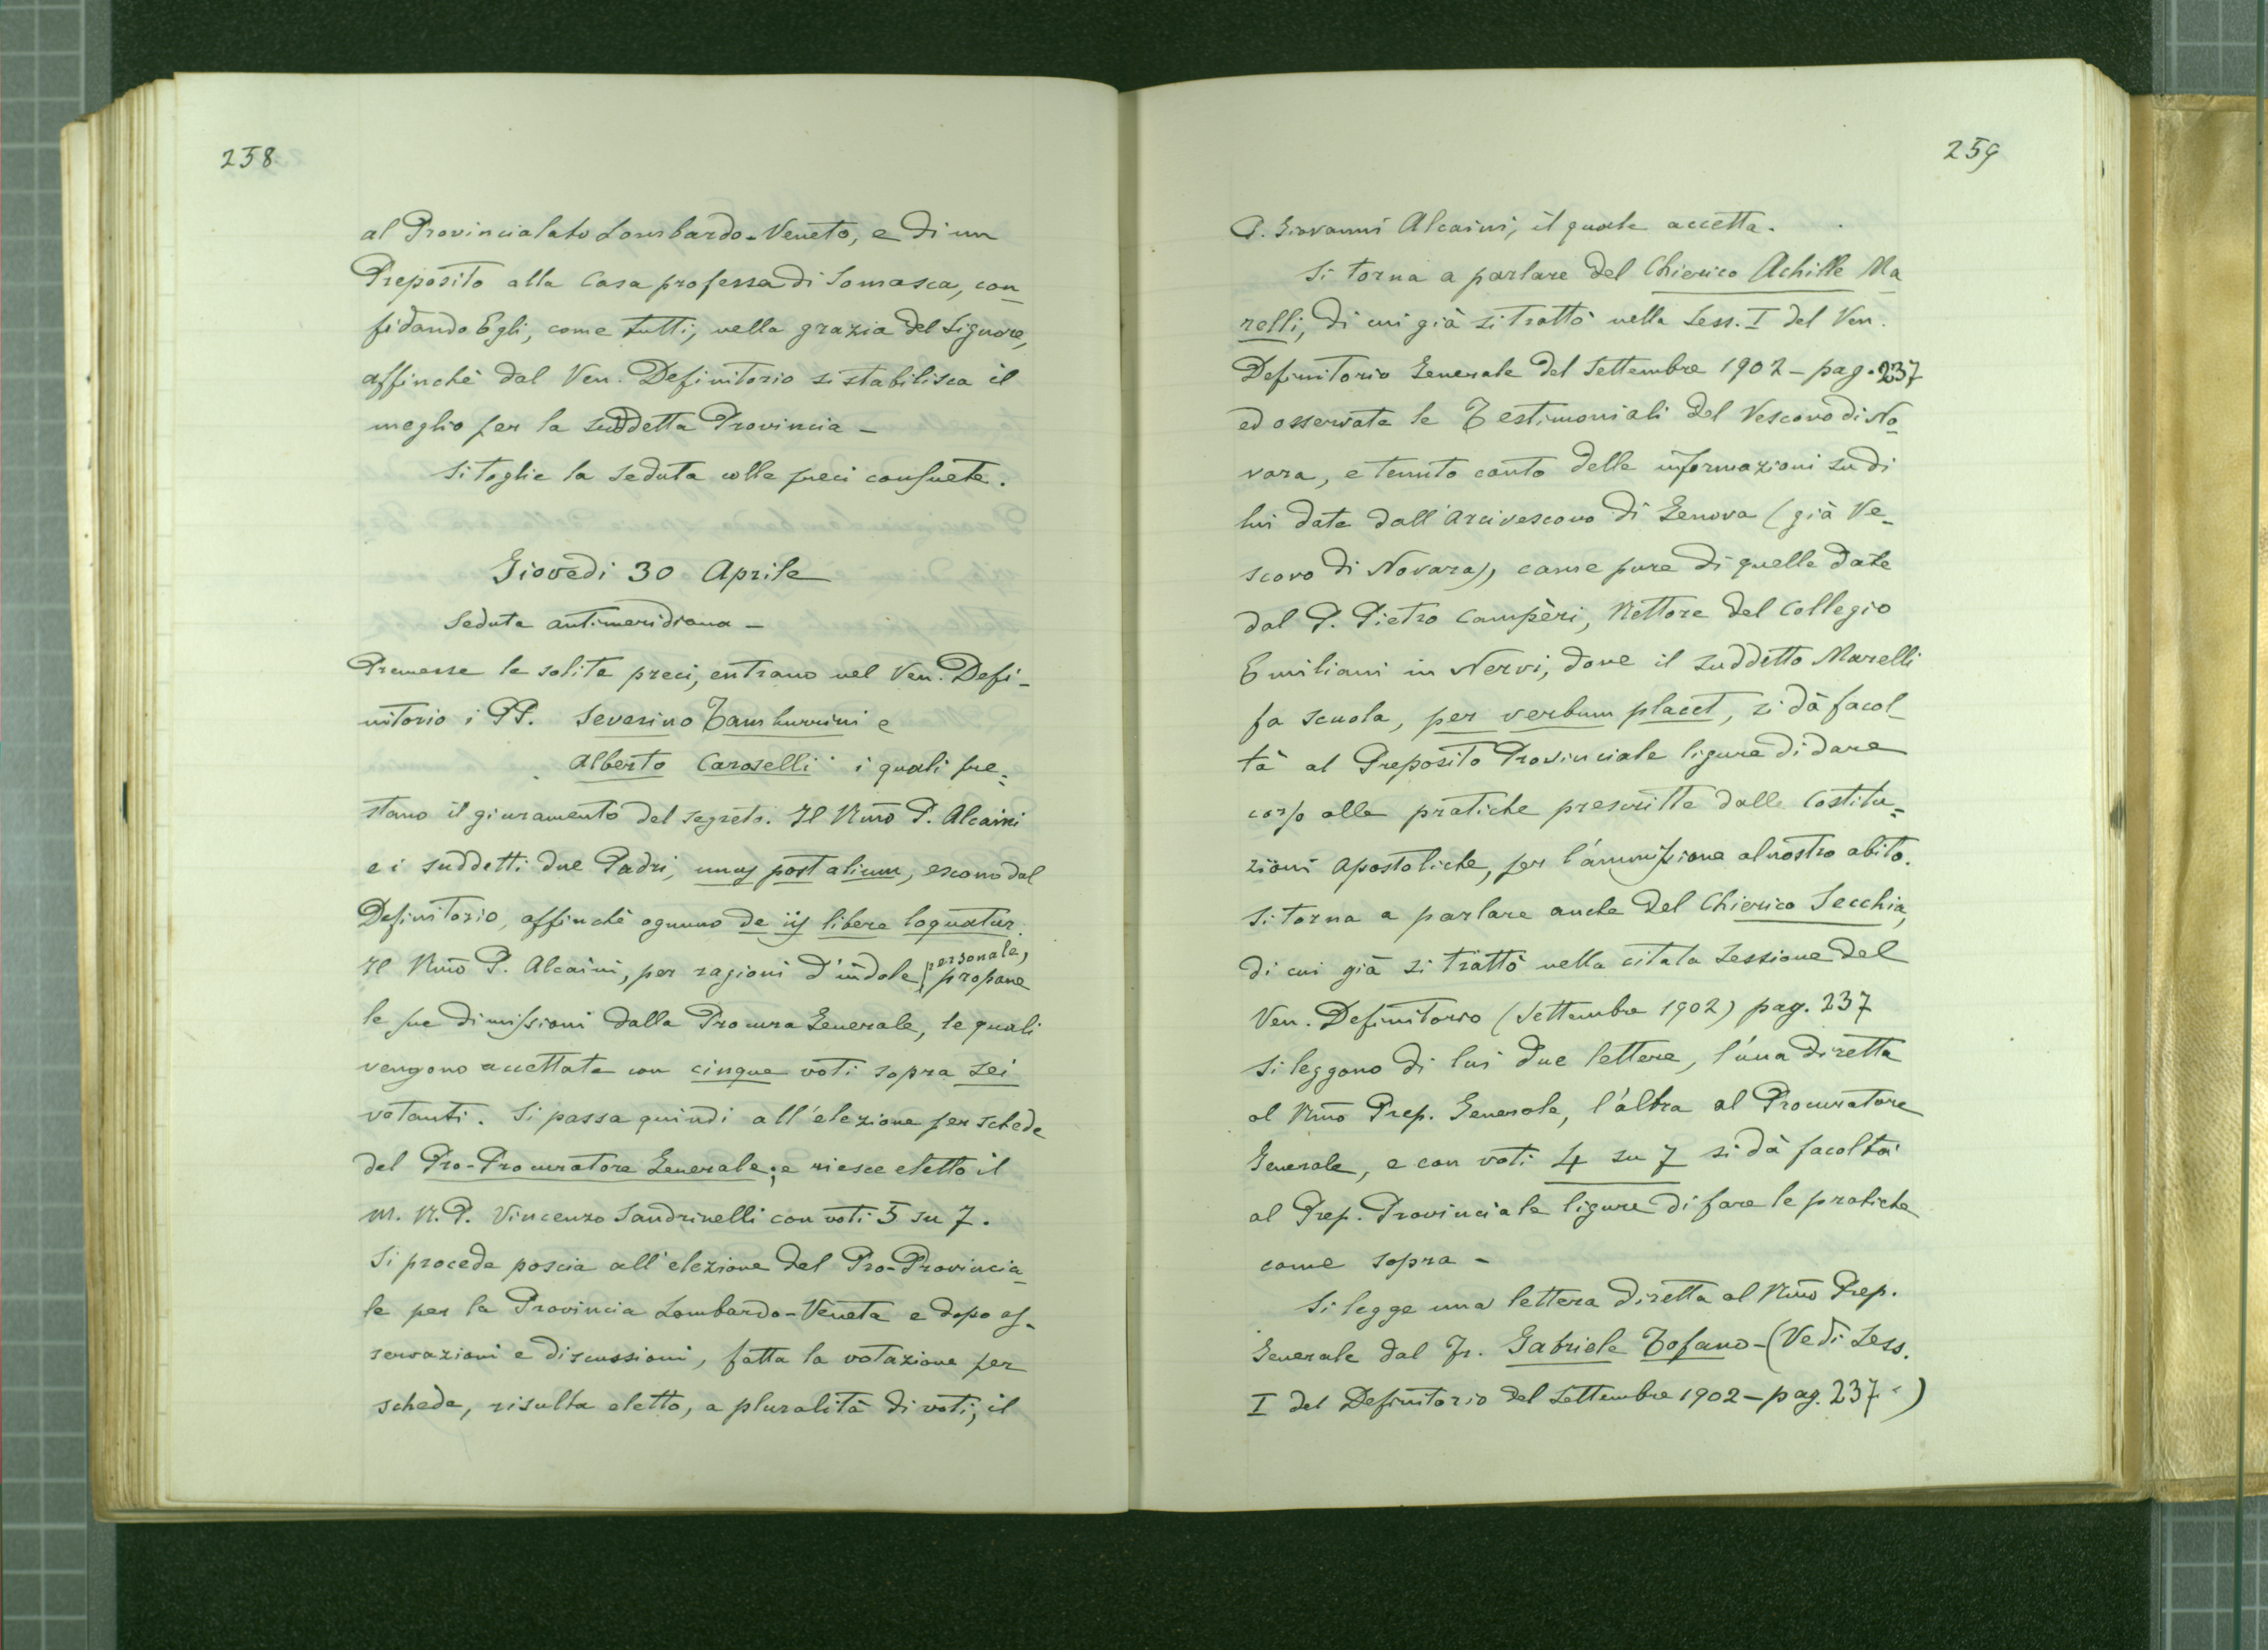 258
al Provincialato Lombardo-Veneto, e di un
Preposito alla Casa professa di Somasca, con_
fidando Egli, come tutti, nella grazia del Signore,
affinchè dal Ven. Definitorio si stabilisca il
meglio per la suddetta Provincia -
Si toglie la seduta colle preci consuete.
Giovedì 30 Aprile
Seduta antimeridiana -
Premesse le solite preci, entrano nel Ven. Defi-
nitorio i PP. Severino Tamburrini e
Alberto Caroselli i quali pre=
stano il giuramento del segreto. Il Rmo P. Alcaini
e i suddetti due Padri, unus post alium, escono dal
Definitorio, affinchè ognuno de iis libere loquatur.
Il Rmo P. Alcaini, per ragioni d'indole personale, propone
le sue dimissioni dalla Procura Generale, le quali
vengono accettate con cinque voti sopra sei
votanti. Si passa quindi all'elezione per schede
del Pro-Procuratore Generale; e riesce eletto il
M. R. P. Vincenzo Sandrinelli con voti 5 su 7.
Si procede poscia all'elezione del Pro-Provincia_
le per la Provincia Lombardo-Veneta e dopo os-
servazioni e discussioni, fatta la votazione per
schede, risulta eletto, a pluralità di voti, il
259
P. Giovanni Alcaini, il quale accetta.
Si torna a parlare del Chierico Achille Ma
relli, di cui già si trattò nella Sess. I del Ven.
Definitorio Generale del Settembre 1902 - pag. 237
ed osservate le Testimoniali del Vescovo di No_
vara, e tenuto conto delle informazioni su di
lui date dall'Arcivescovo di Genova (già Ve_
scovo di Novara), come pure di quelle date
dal P. Pietro Campèri, Rettore del Collegio
Emiliani in Nervi, dove il suddetto Marelli
fa scuola, per verbum placet, si dà facol_
tà al Preposito Provinciale ligure di dare
corso alle pratiche prescritte dalle Costitu=
zioni Apostoliche, per l'ammissione al nostro abito.
Si torna a parlare anche del Chierico Secchia,
di cui già si trattò nella citata Sessione del
Ven. Definitorio (Settembre 1902) pag. 237
Si leggono di lui due lettere, l'una diretta
al Rmo Prep. Generale, l'altra al Procuratore
Generale, e con voti 4 su 7 si dà facoltà
al Prep. Provinciale ligure di fare le pratiche
come sopra -
Si legge una lettera diretta al Rmo Prep.
Generale dal Fr. Gabriele Tofano - (Vedi Sess.
I del Definitorio del Settembre 1902 - pag. 237 )